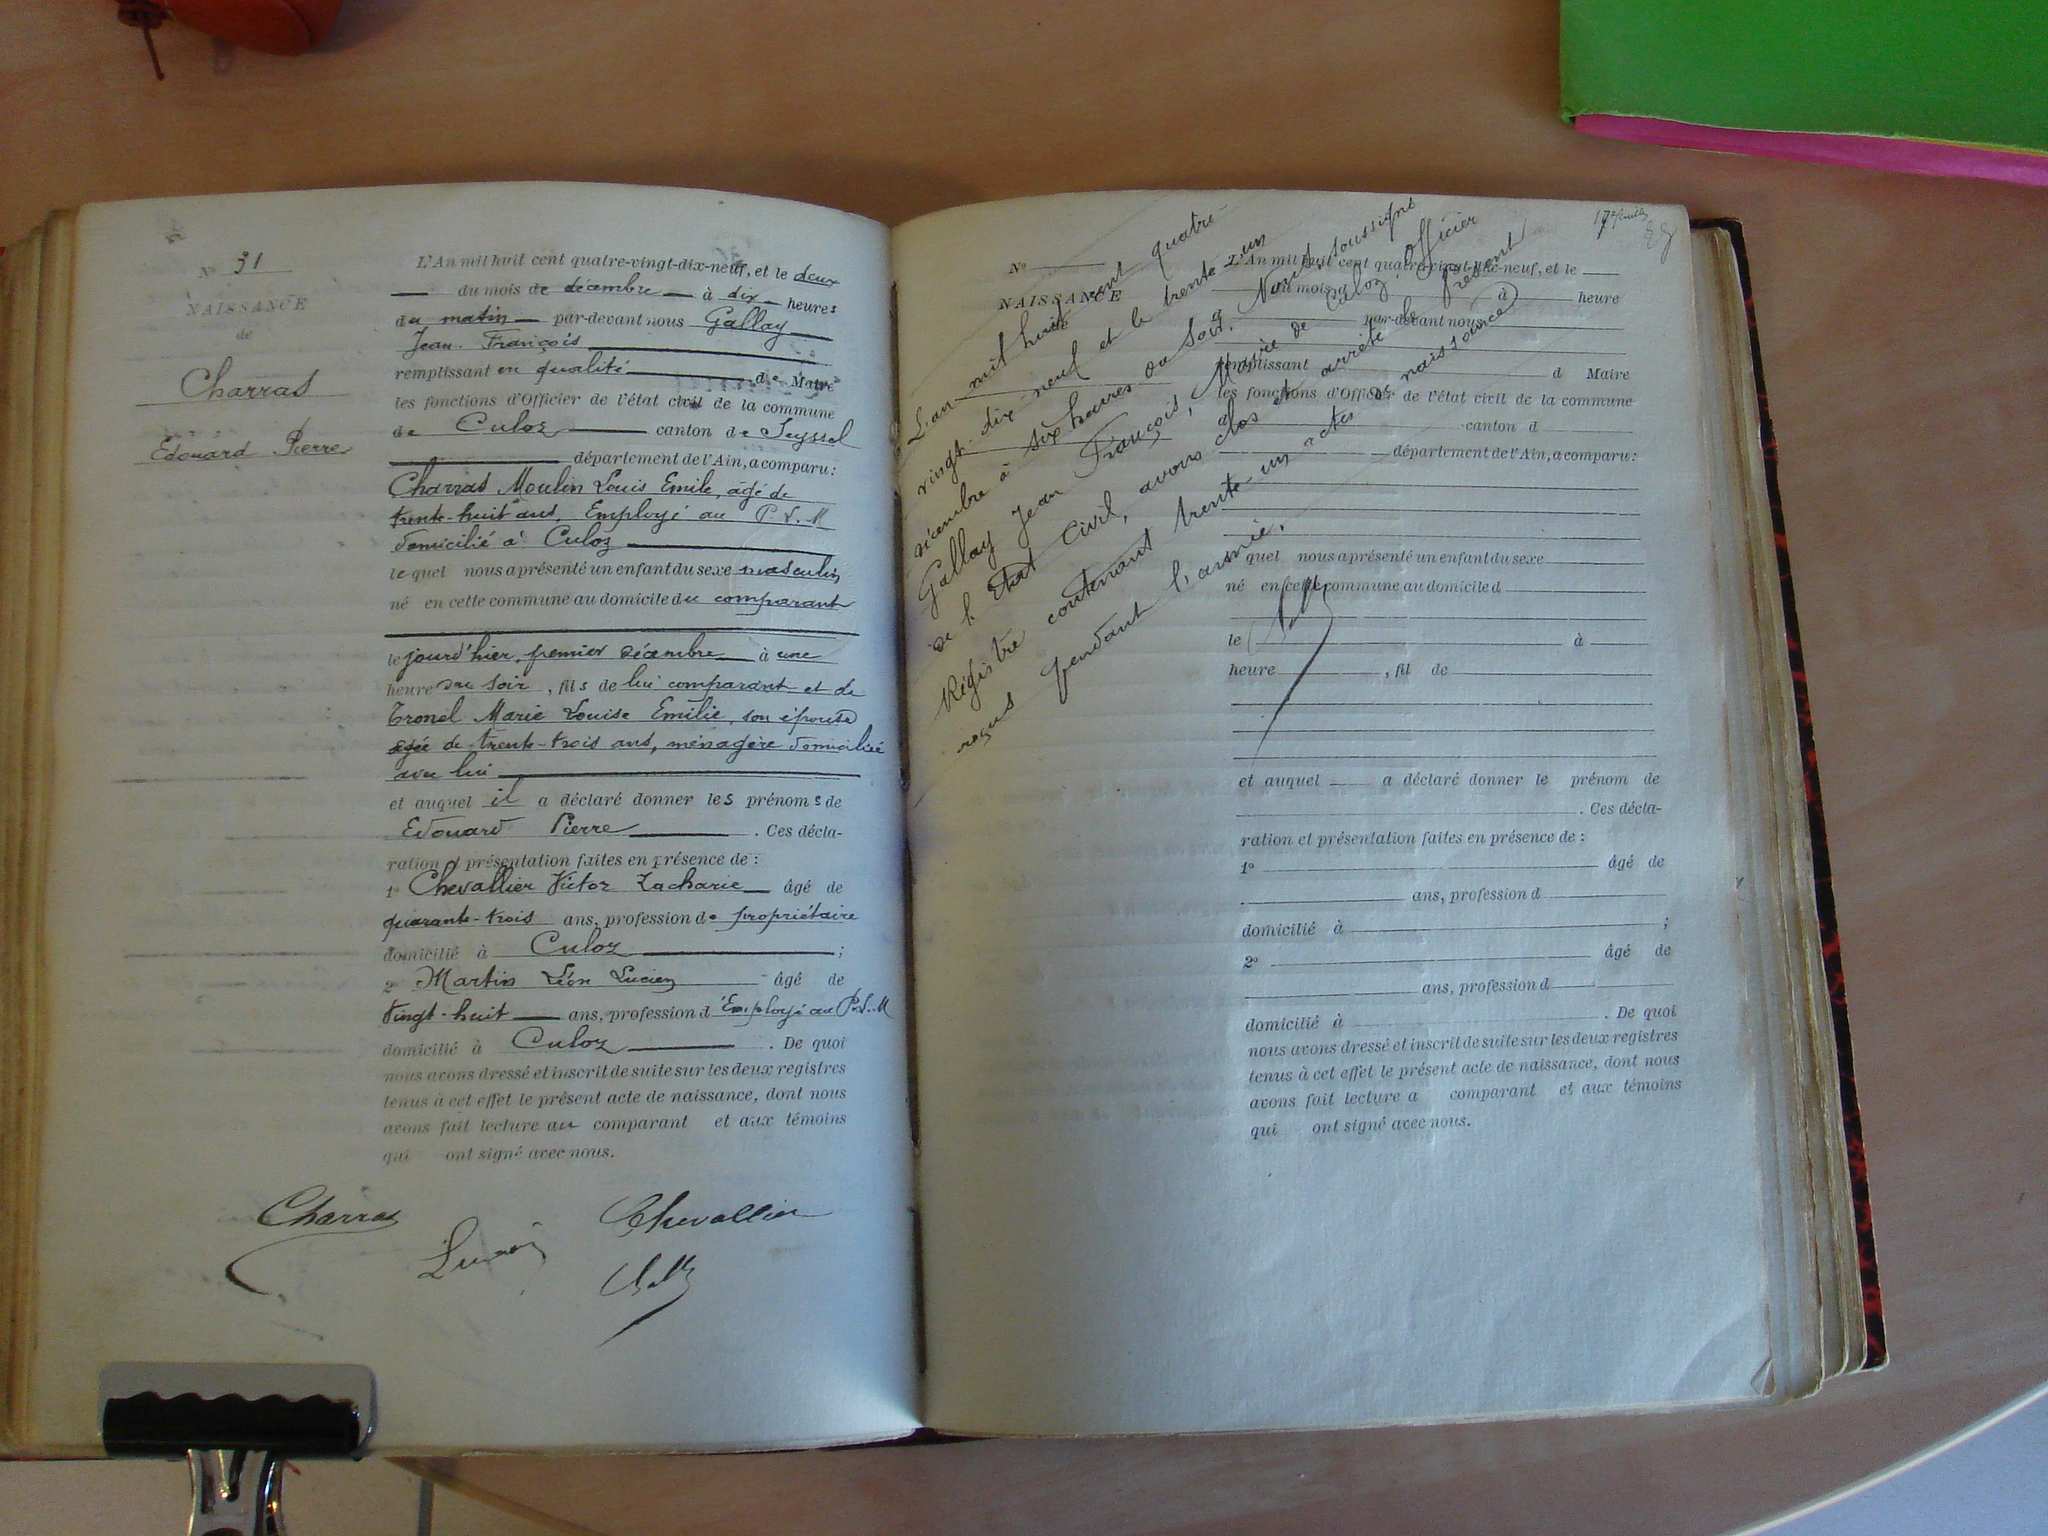 N° 31
NAISSANCE
de
Charras
Edouard Pierre
L'An mil huit cent quatre-vingt-dix-neuf, et le deux
du mois de décembre à dix heures
du matin par-devant nous Gallay
Jean François
remplissant en qualité de Maire
les fonctions d'Officier de l'état civil de la commune
de Culoz canton de Seyssel
département de l'Ain, a comparu:
Charras Moulin Louis Emile, âgé de
trente-huit ans, Employé au P.L.M
domicilié à Culoz
lequel nous a présenté un enfant du sexe masculin
né en cette commune au domicile du comparant
le jourd'hier, premier décembre à une
heure du soir, fils de lui comparant et de
Tronel Marie Louise Emilie, son épouse
agée de trente-trois ans, ménagère domiciliée
avec lui
et auquel il a déclaré donner les prénoms de
Edouard Pierre . Ces décla-
ration et présentation faites en présence de:
1° Chevallier Victor Zacharie âgé de
quarante-trois ans, profession de propriétaire
domicilié à Culoz ;
2° Martin Léon Lucien âgé de
vingt-huit ans, profession d'Employé au P.L.M
domicilié à Culoz . De quoi
nous avons dressé et inscrit de suite sur les deux registres
tenus à cet effet le présent acte de naissance, dont nous
avons fait lecture au comparant et aux témoins
qui ont signé avec nous.
Charras
Chevallier
L'an mil huit cent quatre-
vingt-dix neuf et le trente-un
décembre à six heures du soir, Nous, soussigné
Gallay Jean François, Maire de Culoz, Officier
de l'Etat Civil, avons clos et arrêté le présent
Régistre contenant trente-un actes de naissance
reçus pendant l'année.
N°
NAISSANCE
de
L'An mil huit cent quatre-vingt-dix-neuf, et le
du mois d à heure
par-devant nous
remplissant d Maire
les fonctions d'Officier de l'état civil de la commune
d canton d
département de l'Ain, a comparu:
quel nous a présenté un enfant du sexe
né en cette commune au domicile d
le à
heure , fil de
et auquel a déclaré donner le prénom de
. Ces décla-
ration et présentation faites en présence de:
1° âgé de
ans, profession d
domicilié à ;
2° âgé de
ans, profession d
domicilié à . De quoi
nous avons dressé et inscrit de suite sur les deux registres
tenus à cet effet le présent acte de naissance, dont nous
avons fait lecture a comparant et aux témoins
qui ont signé avec nous.